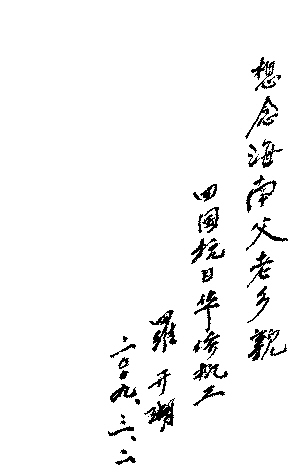 想念海南父老乡親
回国抗日华侨机工
羅开瑚
二〇〇九、三、二